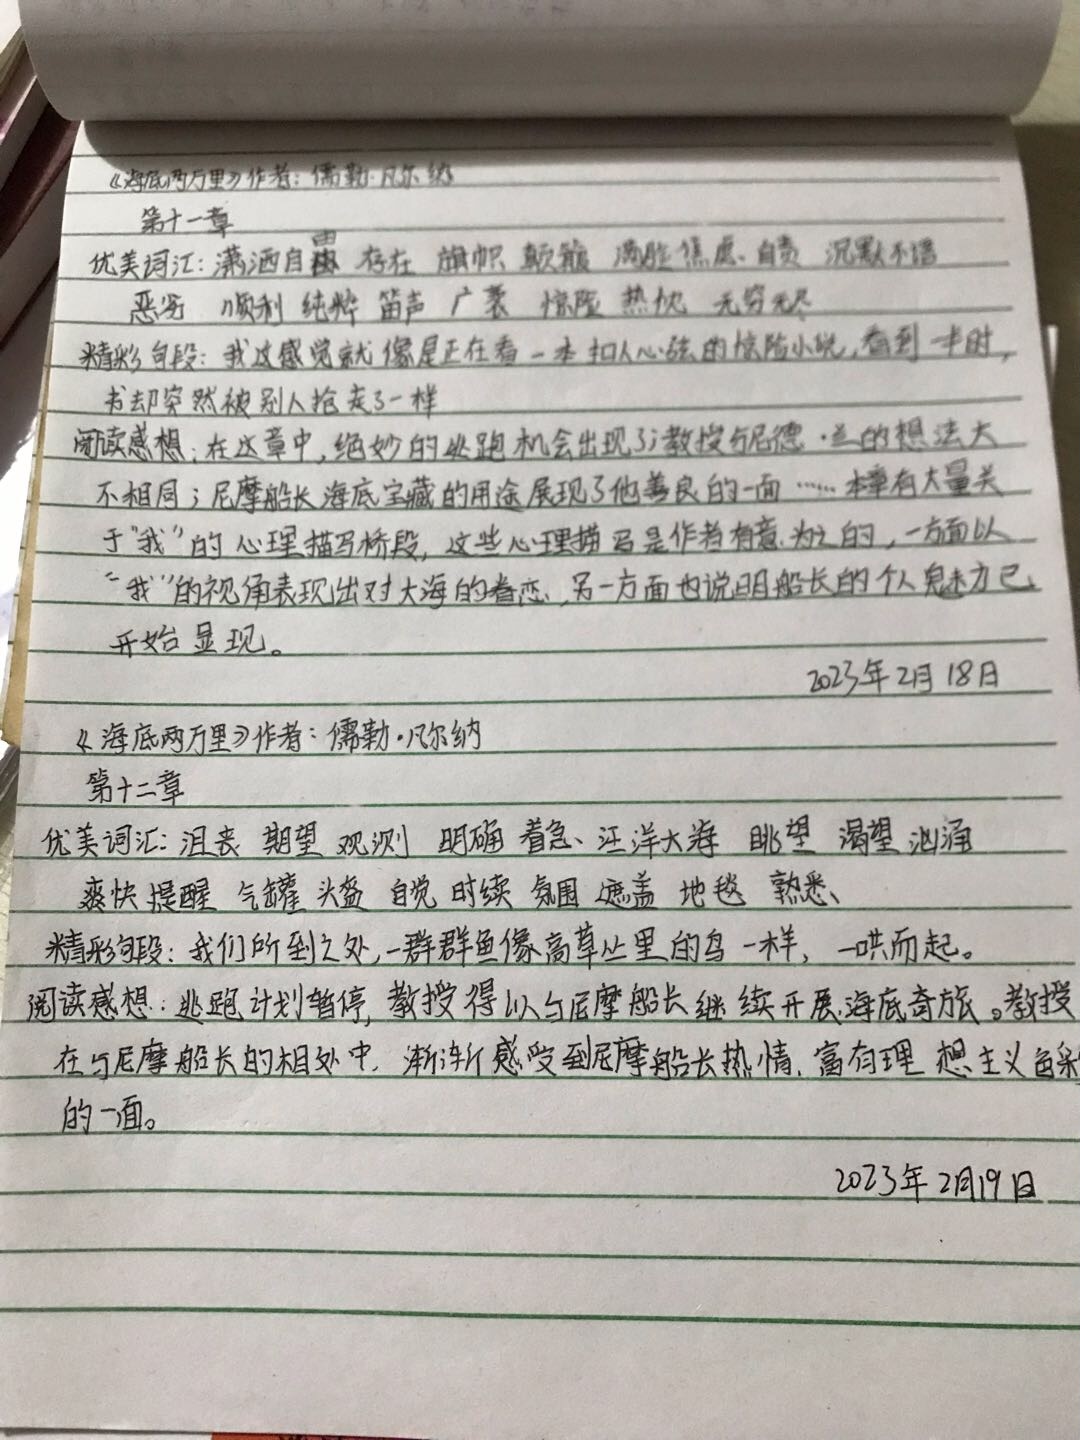 《海底两万里》作者：儒勒·凡尔纳
第十一章
优美词汇：潇洒自由 存在 旗帜 颠簸 满脸焦虑、自责 沉默不语
恶劣 顺利 纯粹 笛声 广袤 惊险 热忱 无穷无尽
精彩句段：我这感觉就像是正在看一本扣人心弦的惊险小说，看到一半时，
书却突然被别人抢走了一样
阅读感想：在这章中，绝妙的逃跑机会出现了；教授与尼德·兰的想法大
不相同；尼摩船长海底宝藏的用途展现了他善良的一面……本章有大量关
于“我”的心理描写桥段，这些心理描写是作者有意为之的，一方面以
“我”的视角表现出对大海的眷恋，另一方面也说明船长的个人魅力已
开始显现。
2023年2月18日
《海底两万里》作者：儒勒·凡尔纳
第十二章
优美词汇：沮丧 期望 观测 明确 着急、汪洋大海 眺望 渴望 汹涌
爽快 提醒 气罐 头盔 自觉 时续 氛围 遮盖 地毯 熟悉、
精彩句段：我们所到之处，一群群鱼像高草丛里的鸟一样，一哄而起。
阅读感想：逃跑计划暂停，教授得以与尼摩船长继续开展海底奇旅。教授
在与尼摩船长的相处中，渐渐感受到尼摩船长热情、富有理想主义色彩
的一面。
2023年2月19日